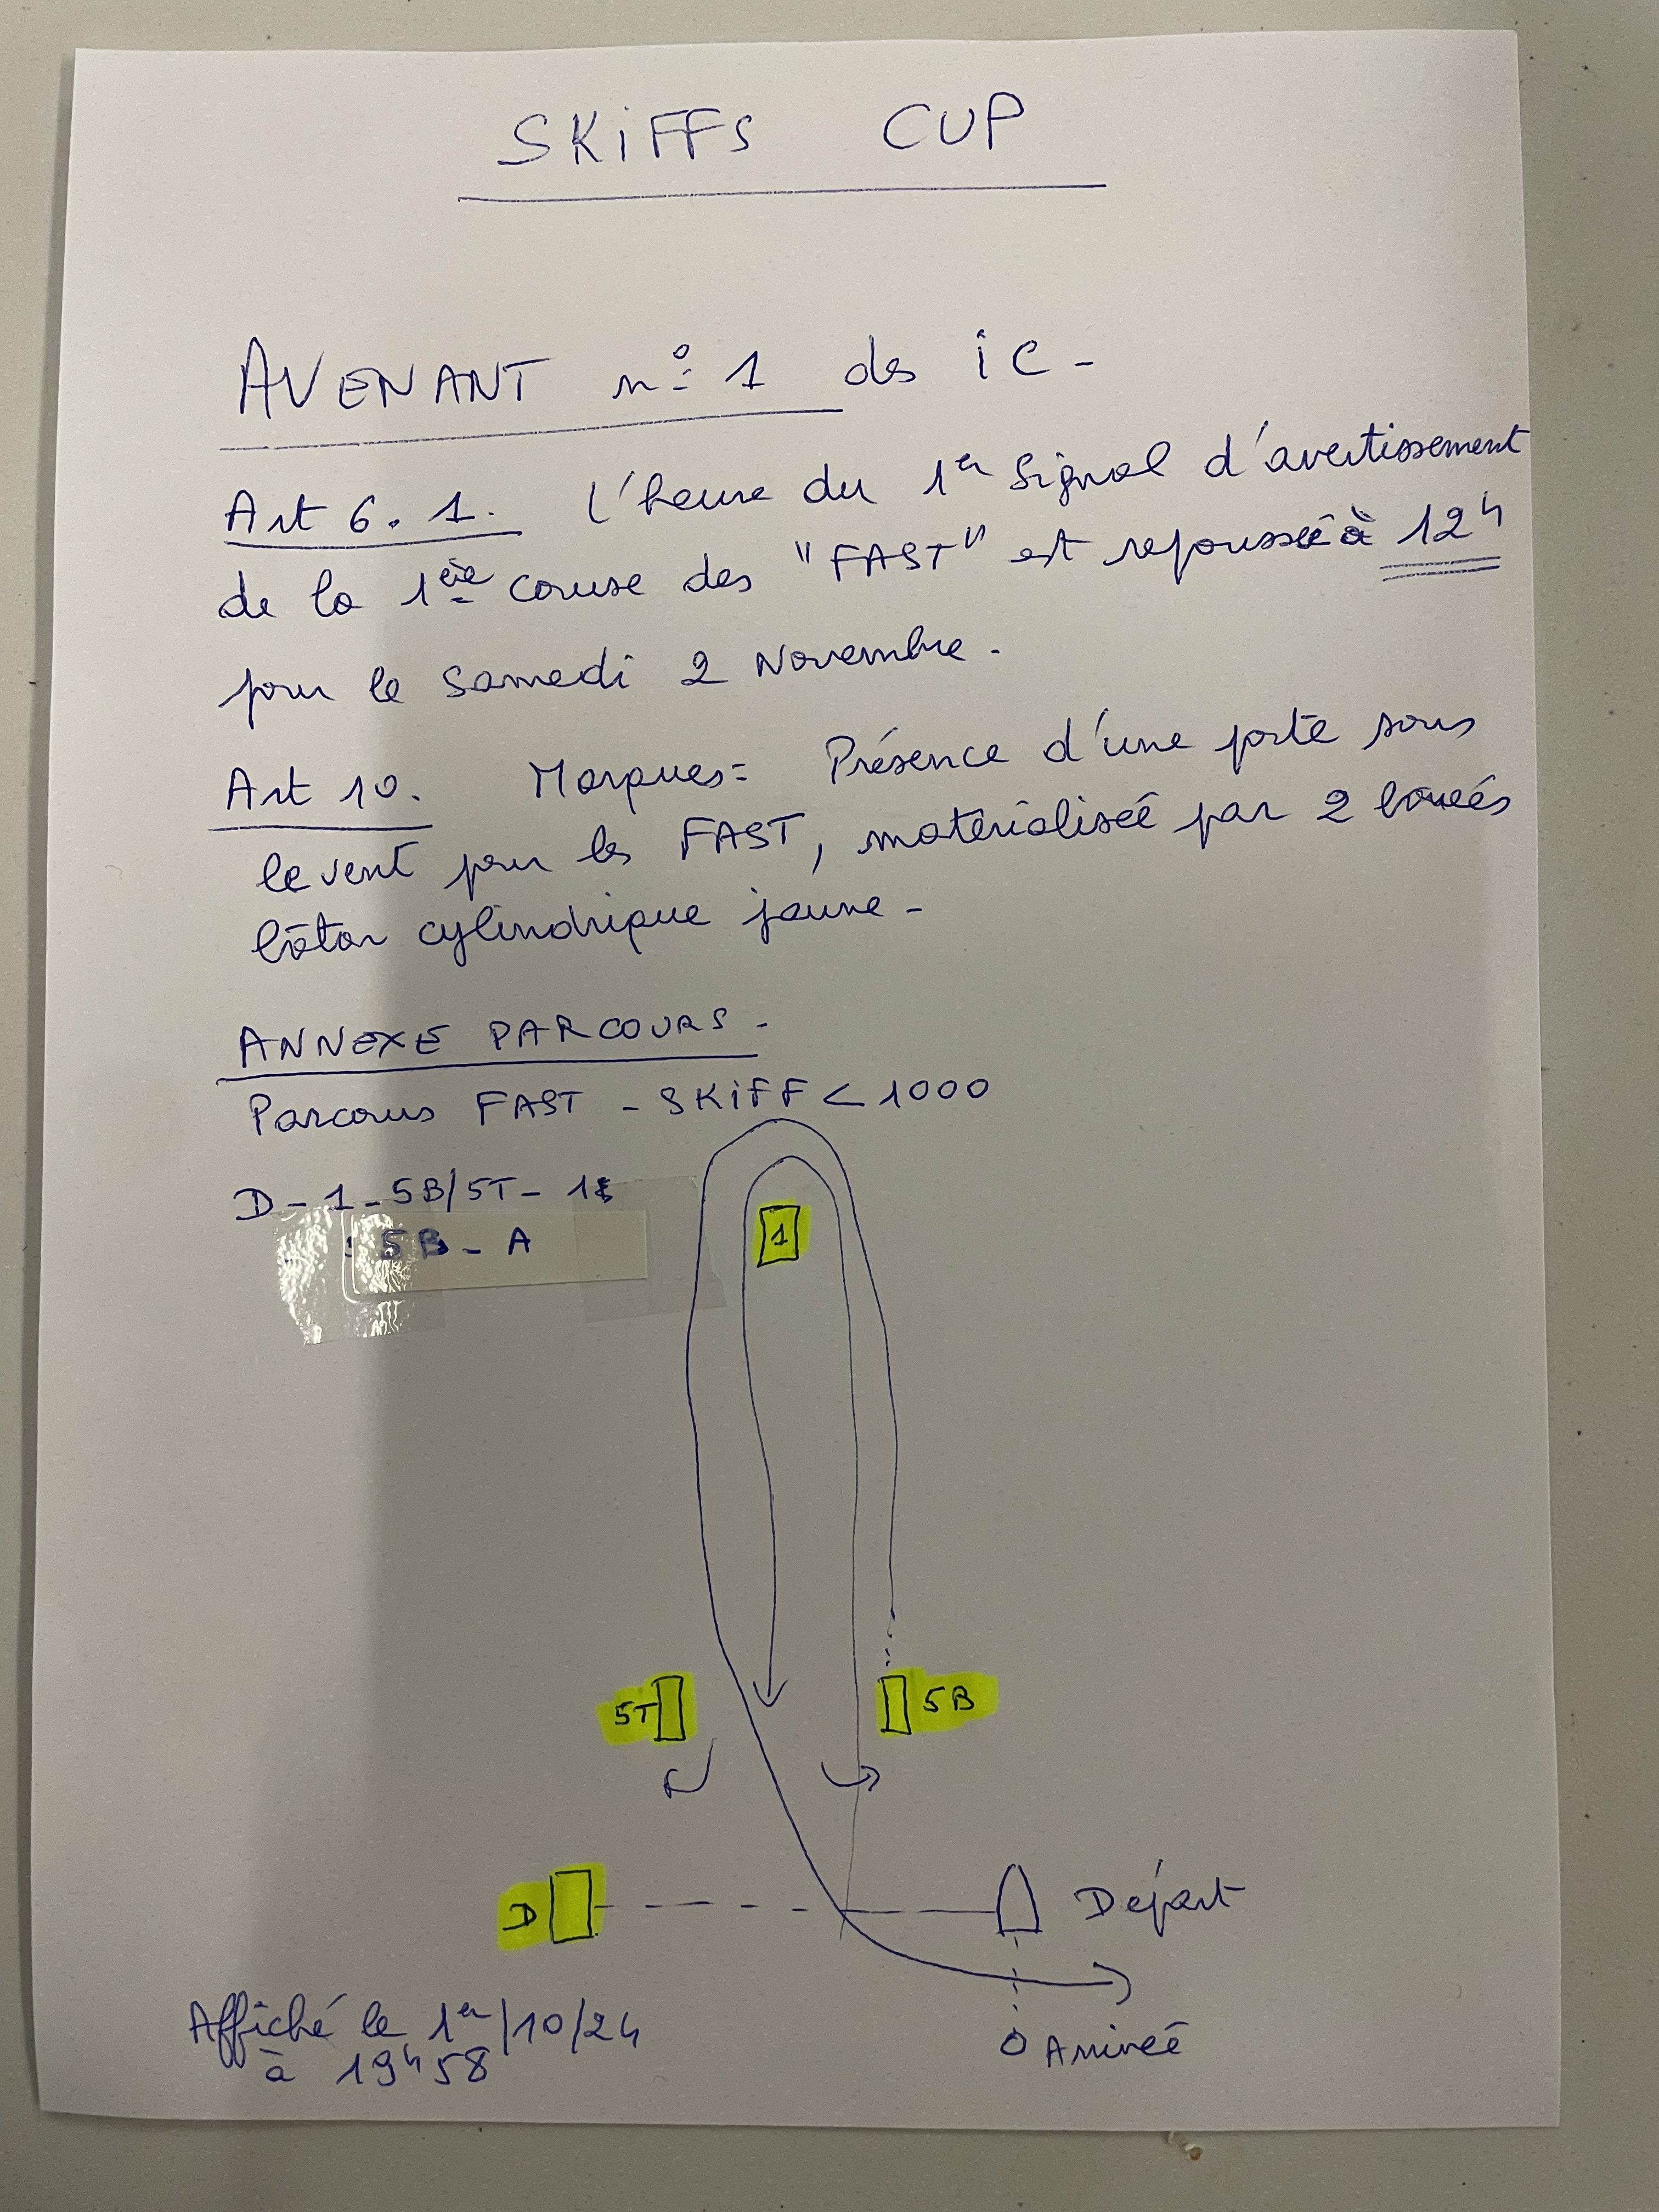 SKiFFS CUP
AVENANT n° 1 des iC -
Art 6.1. l'heure du 1er Signal d'avertissement
de la 1ère course des "FAST" est repoussée à 12h
pour le Samedi 2 Novembre.
Art 10. Marques: Présence d'une porte sous
le vent pour les FAST, matérialisée par 2 bouées
bâton cylindrique jaune -
ANNEXE PARCOURS -
Parcours FAST - SKiFF < 1000
D - 1 - 5B/5T - 1
5B - A
1
5T
5B
D
Départ
Arrivée
Affiché le 1er/10/24
à 19h58